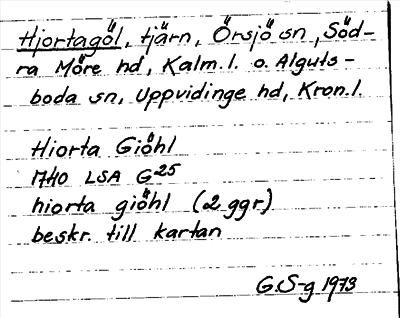 Hjortagöl, tjärn, Örsjö sn, Söd-
ra Möre hd, Kalm.l. o. Alguts-
boda sn, Uppvidinge hd, Kron.l.
Hiorta Giöhl
1740 LSA G25
hiorta giöhl (2 ggr)
beskr. till kartan
G.S-g 1973